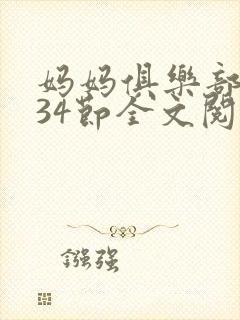 妈妈俱樂部
34節全文閱
镪强